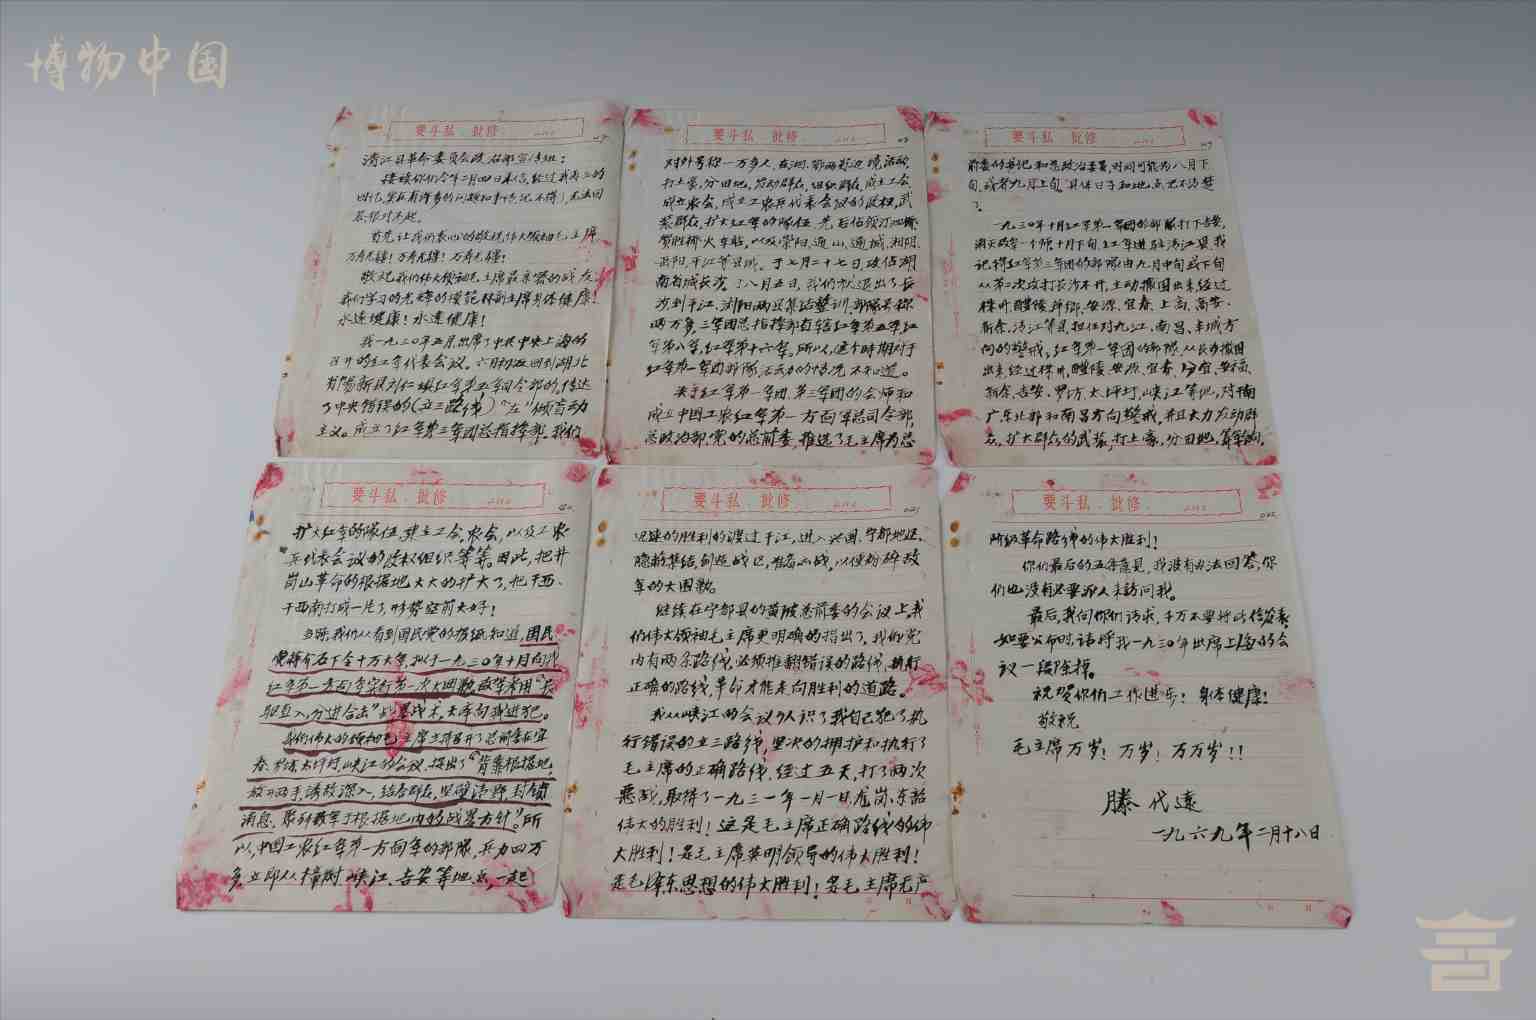 博物中国
要斗私 批修
清江县革命委员会政治部宣传组：
接读你们今年二月四日来信，经过我再三的
回忆，实在有许多的问题和事情记不得了，无法回
答，很对不起。
首先让我们衷心的敬祝伟大领袖毛主席
万寿无疆！万寿无疆！万寿无疆！
敬祝我们伟大领袖毛主席最亲密的战友
我们学习的光辉的模范林副主席身体健康！
永远健康！永远健康！
我一九三〇年五月出席了中共中央上海的
召开的红军代表会议。六月初返回到湖北
省阳新县刘仁八镇红军第五军司令部的，传达
了中央错误的（立三路线）“左”倾盲动
主义。成立了红军第三军团总指挥部，我们
要斗私 批修
对外号称一万多人，在湘、鄂两省边境活动，
打土豪，分田地，发动群众，组织群众，成立工会，
成立农会，成立工农兵代表会议的政权，武
装群众，扩大红军的队伍，先后占领汀泗桥
贺胜桥火车站，以及崇阳、通山、通城、湘阴、
岳阳、平江等县城。于七月二十七日，攻占湖
南省城长沙。了八月五日，我们才退出了长
沙到平江、浏阳两县集结整训，部队号称
两万多，三军团总指挥部直辖红军第五军，红
军第八军，红军第十六军。所以，这个时期对于
红军第一军团部队，在活动的情况不知道。
关于红军第一军团、第三军团的会师和
成立中国工农红军第一方面军总司令部，
总政治部，党的总前委，推选了毛主席为总
要斗私 批修
前委的书记和总政治委员，时间可能为八月下
旬，或者九月上旬，具体日子和地点记不清楚
了。
一九三〇年十月红军第一军团的部队打下吉安，
消灭敌军一个师，十月下旬，红军进驻清江县，我
记得红军第三军团的部队由九月中旬或下旬
从第二次攻打长沙不开，主动撤围出来经过
株州、醴陵、萍乡、安源、宜春、上高、高安、
新余、清江等县，担任对九江、南昌、丰城方
向的警戒。红军第一军团的部队，从长沙撤围
出来经过株州、醴陵、安源、宜春、分宜、安福、
新余、吉安、罗坊、太坪圩、峡江等地，对赣
广东北部和南昌方向警戒，并且大力发动群
众，扩大群众的武装，打土豪，分田地，筹军饷，
要斗私 批修
扩大红军的队伍，建立工会，农会，以及工农
兵代表会议的政权组织等等。因此，把井
岗山革命的根据地大大的扩大了，把赣西、
赣西南打成一片了，形势空前大好！
当时，我们从看到国民党的报纸知道，国民
党蒋介石下令十万大军，拟于一九三〇年十月向我
红军第一方面军实行第一次大围剿，敌军采用“长
驱直入，分进合击”的战术，大军向我进犯。
我们伟大的领袖毛主席主持召开了总前委在宜
春、太坪圩、峡江的会议，提出了“背靠根据地，
放开两手，诱敌深入，结合群众，坚壁清野，封锁
消息，聚歼敌军于根据地内的战略方针”。所
以，中国工农红军第一方面军的部队，兵力四万
多，立即从樟树、峡江、吉安等地点，一起
要斗私 批修
迅速的胜利的渡过赣江，进入兴国、宁都地区，
隐蔽集结，创造战区，准备必战，以便粉碎敌
军的大围剿。
继续在宁都县的黄陂总前委的会议上，我
们伟大领袖毛主席更明确的指出了，我们党
内有两条路线，必须推翻错误的路线，执行
正确的路线，革命才能走向胜利的道路。
我从峡江的会议以认识了我自己犯了执
行错误的立三路线，坚决的拥护和执行了
毛主席的正确路线，经过五天，打了两次
恶战，取得了一九三一年一月一日，龙岗、东韶
伟大的胜利！这是毛主席正确路线的伟
大胜利！是毛主席英明领导的伟大胜利！
是毛泽东思想的伟大胜利！是毛主席无产
要斗私 批修
阶级革命路线的伟大胜利！
你们最后的五条意见，我没有办法回答，你
们也没有必要派人来访问我。
最后，我向你们请求，千万不要将此信发表
如要公布时，请将我一九三〇年出席上海的会
议一段除掉。
祝贺你们工作进步！身体健康！
敬祝
毛主席万岁！万岁！万万岁！！
滕代远
一九六九年二月十八日